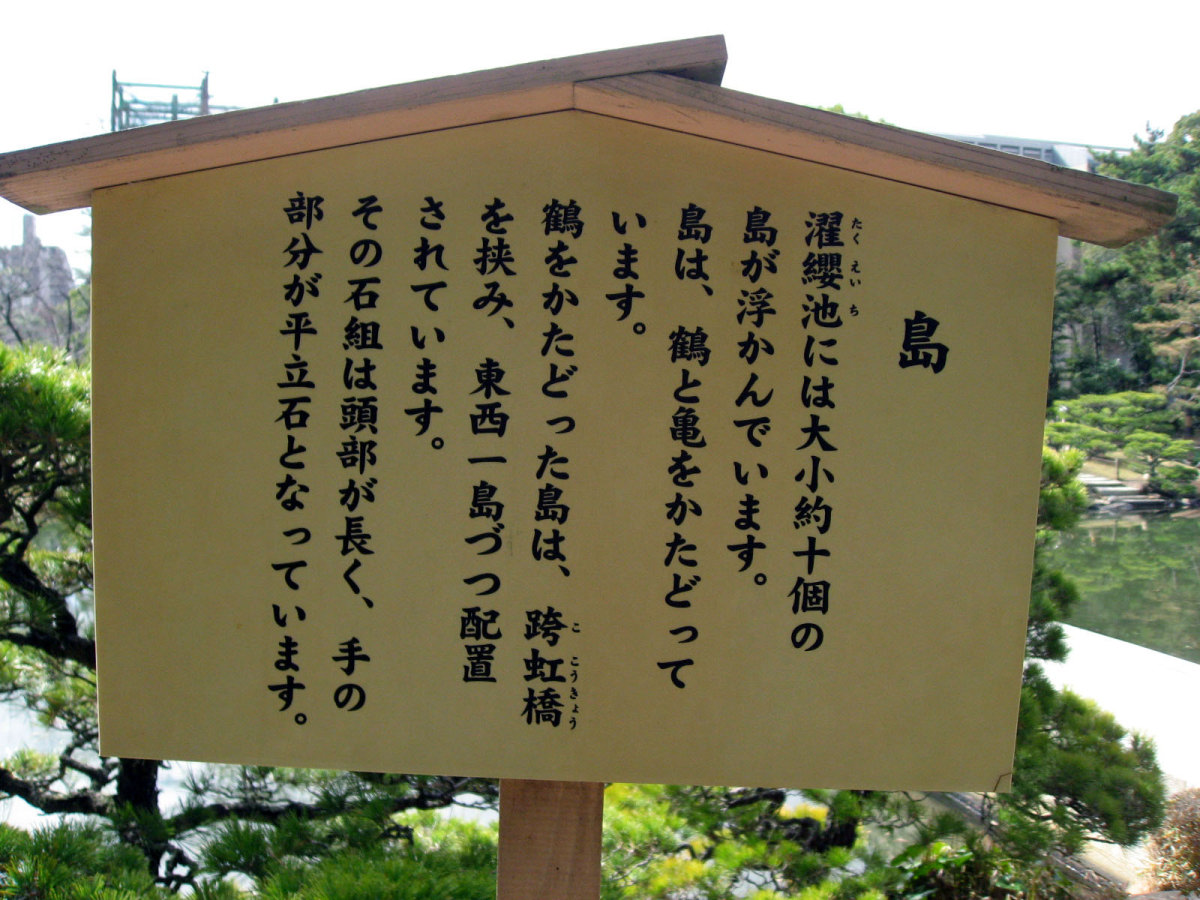 島
濯纓池には大小約十個の
島が浮かんでいます。
島は、鶴と亀をかたどって
います。
鶴をかたどった島は、跨虹橋
を挟み、東西一島づつ配置
されています。
その石組は頭部が長く、手の
部分が平立石となっています。
たくえいち
ここうきょう